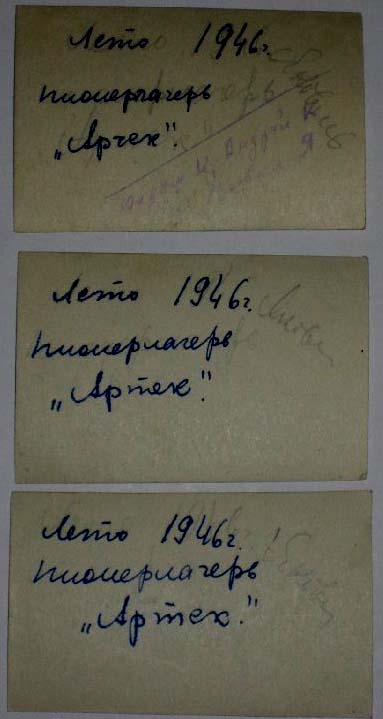 Лето 1946г.
пионерлагерь
„Артек".
Лето 1946г.
Пионерлагерь
„Артек".
Лето 1946г.
Пионерлагерь
„Артек."